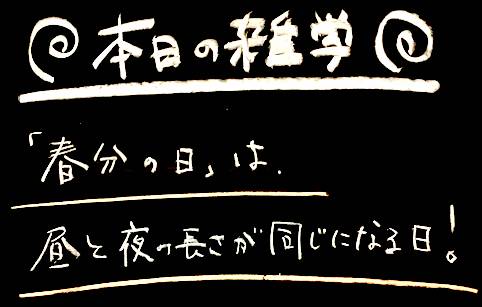 本日の雑学
「春分の日」は、
昼と夜の長さが同じになる日!